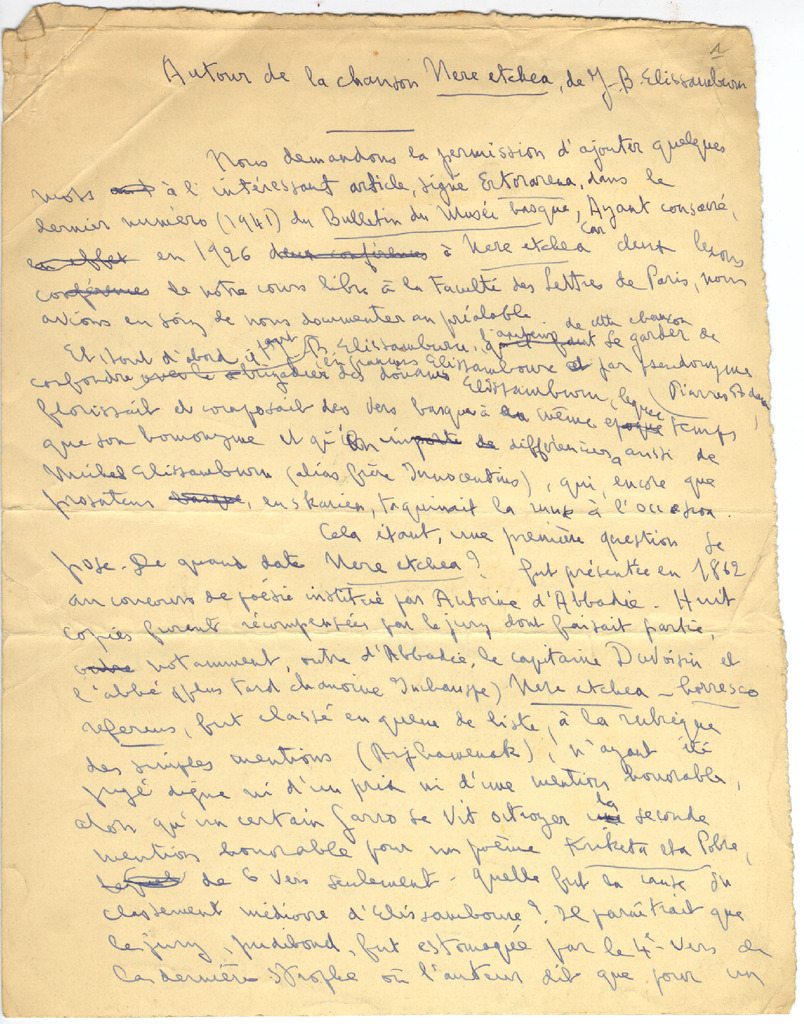 1
Autour de la chanson Nere etchea, de J-B. Elissamburu
Nous demandons la permission d'ajouter quelques
mots à l'intéressant article, signé Ectorarena, dans le
dernier numéro (1941) du Bulletin du Musée basque, Ayant consacré,
car
en effet en 1926 deux conférences à Nere etchea deux leçons
conférences de notre cours libre à la Faculté des Lettres de Paris, nous
avions eu soin de nous documenter au préalable
de cette chanson
Et tout d'abord, il faut Elissamburu, qu'il faut se garder de
confondre avec le brigadier des douanes Elissamburu, par pseudonyme
florissait et composait des vers basques à la même époque temps
que son homonyme et qu'il importe de différencier aussi de
Michel Elissamburu (alias frère Innocentius), qui, encore que
prosateur basque, euskarien, taquinait la muse à l'occasion.
Cela étant, une première question se
pose. De quand date Nere etchea? fut présentée en 1862
au concours de poésie institué par Antoine d'Abbadie. Huit
copies furent récompensées par le jury dont faisait partie,
outre notamment, outre d'Abbadie, le capitaine Duvoisin et
l'abbé (plus tard chanoine Inchauspe) Nere etchea – horresco
referens, fut classé en queue de liste, à la rubrique
des simples mentions, n'ayant été
jugé digne ni d'un prix ni d'une mention honorable,
alors qu'un certain Garro se vit octroyer une la seconde
mention honorable pour un poème Kriketa eta Pobre,
lequel de 6 vers seulement. Quelle fut la cause du
classement médiocre d'Elissamboure? Il paraîtrait que
le jury, pudibond, fut estomaqué par le 4e vers de
la dernière strophe où l'auteur dit que pour un